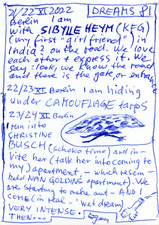 21/22 VI 2022 DREAMS 81
Berlin I am
with SIBYLE HEYM (KFG)
(my first "girlfriend") in
India? on the road. We love
each other & express it. We
say: look, we know the road
and there is the gate, or entrance
22/23 VI Berlin I am hiding
under CAMOUFLAGE tarps
23/24 VI Berlin
I run into
CHRISTINE
BUSCH (schoko time) and in-
vite her (talk her into coming to
my apartment – which resem-
bles NAN GOLDINS apartment). We
are starting to make out – AND I
come (in real – "wet dream)
VERY INTENSE.
THEN...